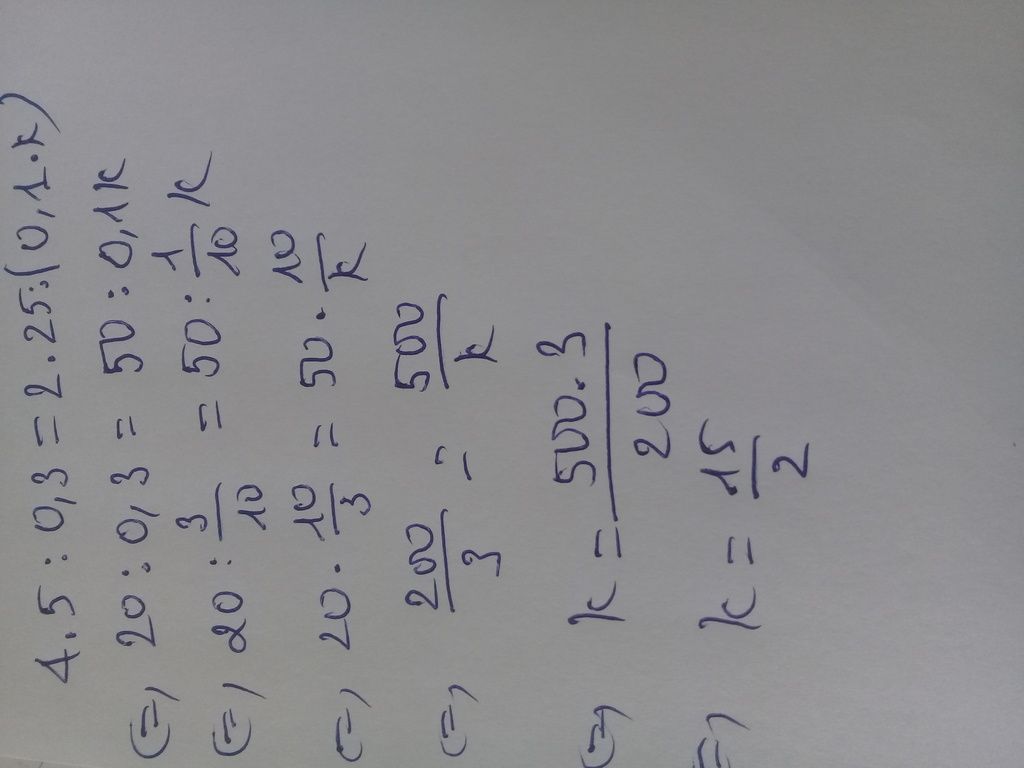 4.5 : 0,3 = 2.25:(0,1.x)
(=) 20 : 0,3 = 50 : 0,1x
(=) 20 : 3/10 = 50 : 1/10 x
(=) 20 . 10/3 = 50 . 10/x
(=) 200/3 = 500/x
(=) x = 500.3/200
(=) x = 15/2